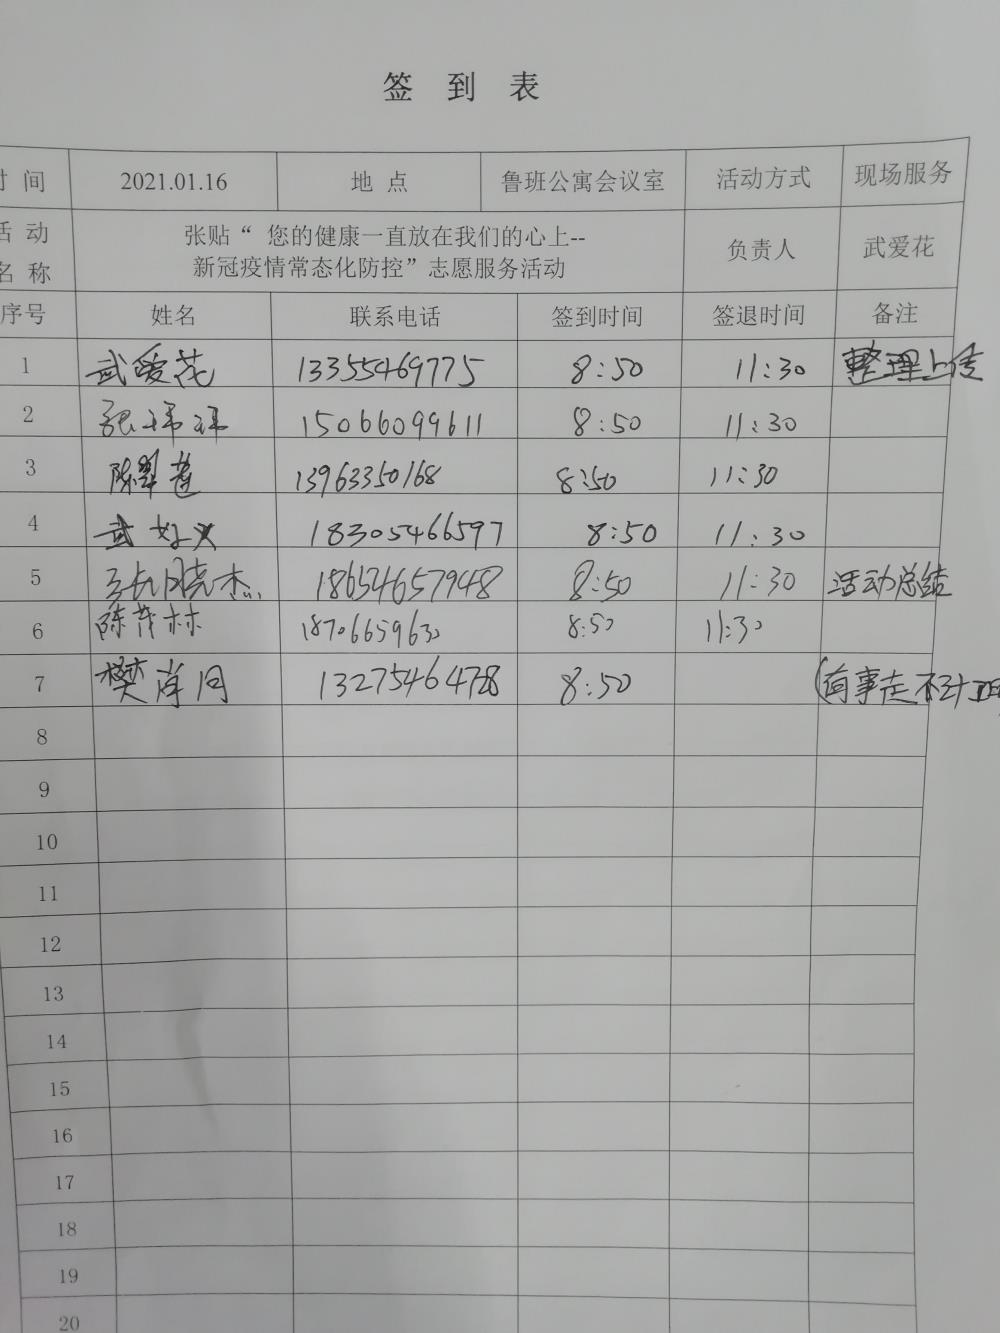 签 到 表
时 间 2021.01.16 地 点 鲁班公寓会议室 活动方式 现场服务
活 动 名 称 张贴“ 您的健康一直放在我们的心上-- 负责人 武爱花
新冠疫情常态化防控”志愿服务活动
序号 姓名 联系电话 签到时间 签退时间 备注
1 武爱花 13355469775 8:50 11:30 整理上传
2 15066099611 8:50 11:30
3 陈翠莲 13963350168 8:50 11:30
4 武 18305466597 8:50 11:30
5 18654657948 8:50 11:30 活动总结
6 陈茂林 18706659630 8:50 11:30
7 樊肖同 8:50 (有事走不计
8
9
10
11
12
13
14
15
16
17
18
19
20